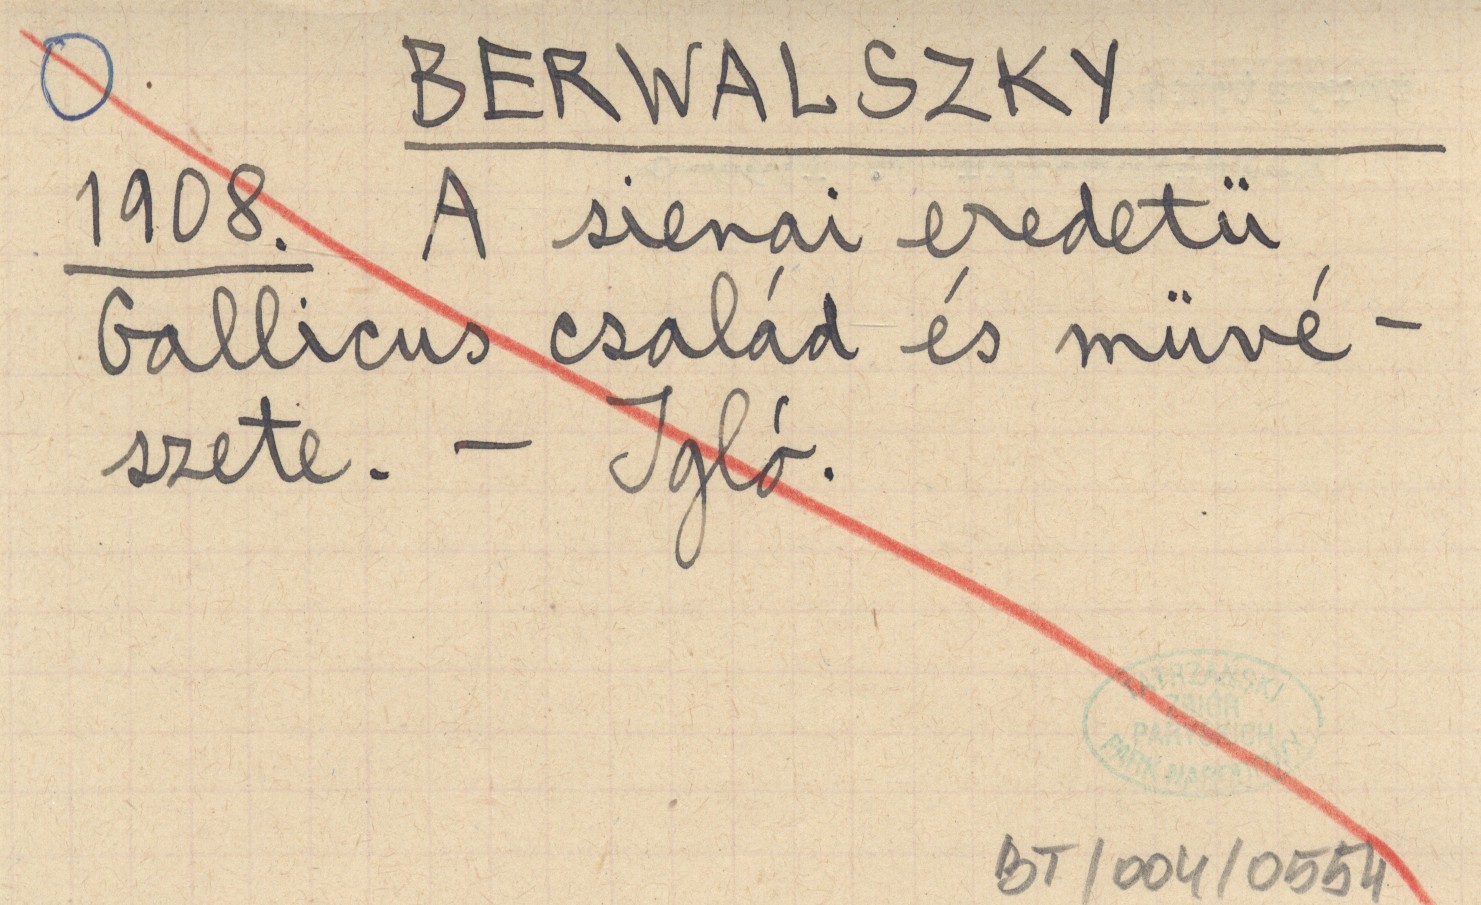 BERWALSZKY
1908. A sienai eredetü
Gallicus család és müvé-
szete. – Igló.
TATRZAŃSKI
ZBIÓR
PARK NARODOWY
BT/004/0554